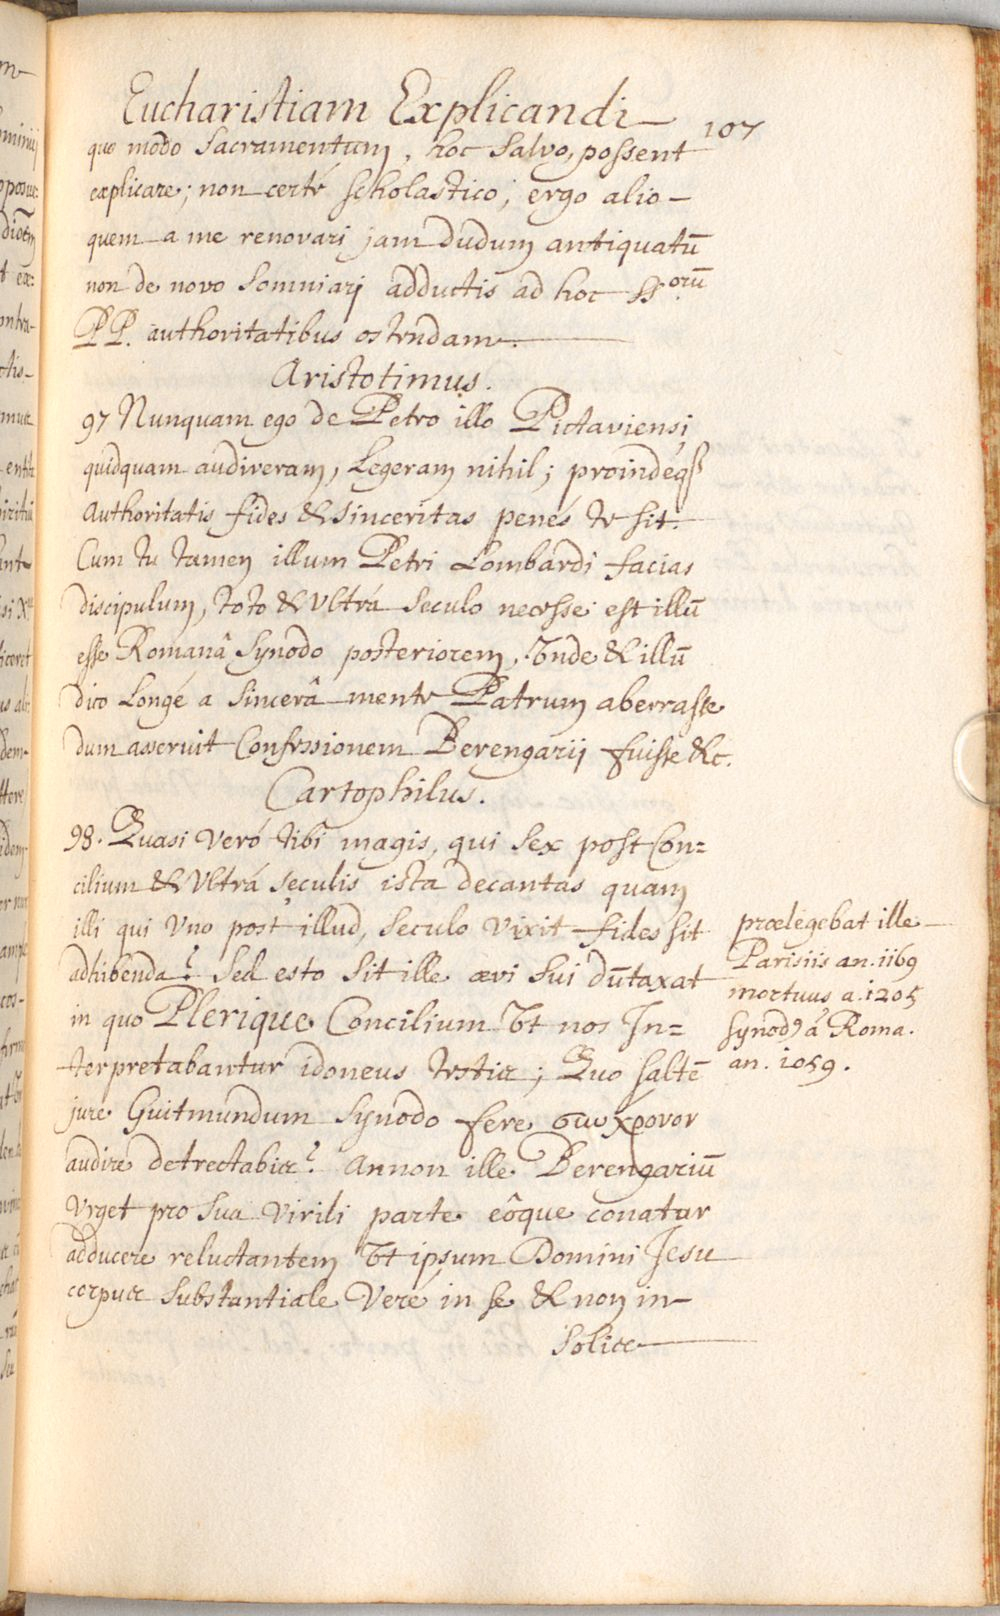 Eucharistiam Explicandi
107
quo modo Sacramentum, hoc Salvo, possent
explicare; non certè scholastico; ergo alio
quem a me renovari jam dudum antiquatū
non de novo Somniari adductis ad hoc SS.orū
PP. authoritatibus ostendam.
Aristotimus.
97 Nunquam ego de Petro illo Pictaviensi
quidquam audiveram, Legeram nihil; proindéqꝫ
Authoritatis fides & sinceritas penés te sit.
Cum tu tamen illum Petri Lombardi facias
discipulum, toto & Ultrá Seculo necesse est illū
esse Romanâ Synodo posteriorem, Unde & illū
dico Longé a Sincerâ mente Patrum aberrasse
dum asseruit Confessionem Berengarij fuisse &c.
Cartophilus.
98. Quasi veró tibi magis, qui Sex post Con=
cilium & Ultrá seculis ista decantas quam
illi qui Uno post illud, Seculo vixit fides sit
adhibenda? Sed esto Sit ille ævi Sui dūtaxat
in quo Plerique Concilium Ut nos In=
terpretabantur idoneus testis; Quo saltē
jure Guitmundum Synodo fere συνχρονον
audire detrectabis? Annon ille Berengariū
Urget pro Sua Virili parte eôque conatur
adducere reluctantem Ut ipsum Domini Jesu
corpus Substantiale Veré in se & non in
Solis
prælegebat ille
Parisiis an. 1169
mortuus a. 1205
Synod9 á Roma.
an. 1059.